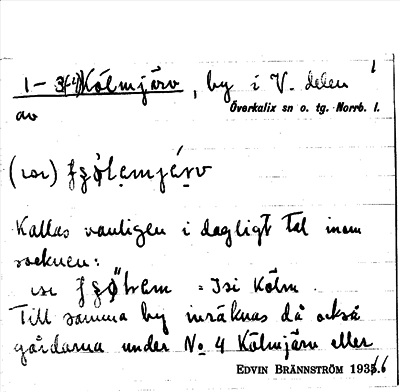 1-3(-4) Kölmjärv, by i V. delen
Överkalix sn o. tg. Norrb. l.
av
Kallas vanligen i dagligt tal inom
socknen:
= Isi Kölm.
Till samma by inräknas då också
gårdarna under No 4 Kölmjärv eller
EDVIN BRÄNNSTRÖM 193